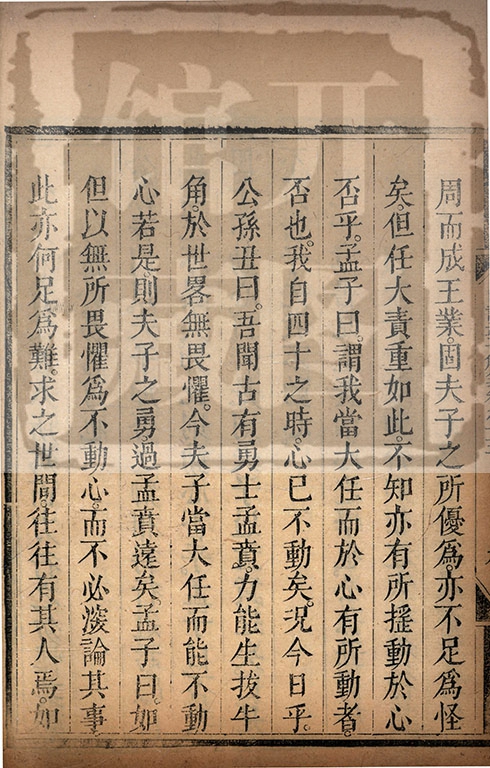 周而成王業。固夫子之所優爲。亦不足爲怪
矣。但任大責重如此。不知亦有所搖動於心
否乎。孟子曰。謂我當大任而於心有所動者。
否也。我自四十之時。心已不動矣。况今日乎。
公孫丑曰。吾聞古有勇士孟賁。力能生拔牛
角。於世畧無畏懼。今夫子當大任而能不動
心若是。則夫子之勇。過孟賁遠矣。孟子曰。如
但以無所畏懼爲不動心。而不必深論其事。
此亦何足爲難。求之世間。往往有其人焉。如